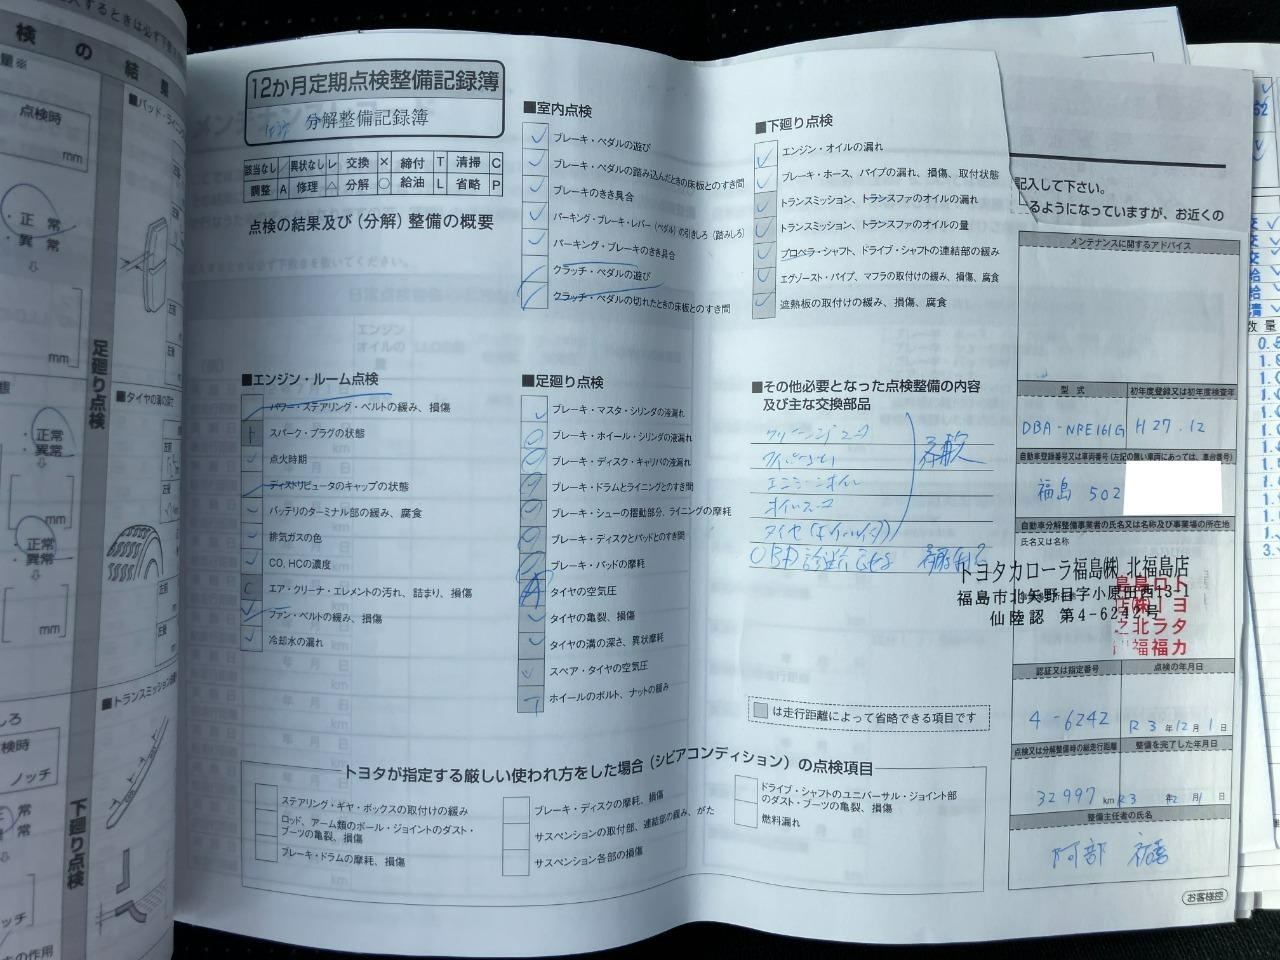 12か月定期点検整備記録簿
分解整備記録簿
該当なし / 異状なし レ 交換 × 締付 T 清掃 C
調整 A 修理 △ 分解 ○ 給油 L 省略 P
点検の結果及び(分解)整備の概要
■室内点検
ブレーキ・ペダルの遊び
ブレーキ・ペダルの踏み込んだときの床板とのすき間
ブレーキのきき具合
パーキング・ブレーキ・レバー(ペダル)の引きしろ(踏みしろ)
パーキング・ブレーキのきき具合
クラッチ・ペダルの遊び
クラッチ・ペダルの切れたときの床板とのすき間
■下廻り点検
エンジン・オイルの漏れ
ブレーキ・ホース、パイプの漏れ、損傷、取付状態
トランスミッション、トランスファのオイルの漏れ
トランスミッション、トランスファのオイルの量
プロペラ・シャフト、ドライブ・シャフトの連結部の緩み
エグゾースト・パイプ、マフラの取付けの緩み、損傷、腐食
遮熱板の取付けの緩み、損傷、腐食
■エンジン・ルーム点検
パワー・ステアリング・ベルトの緩み、損傷
スパーク・プラグの状態
点火時期
ディストリビュータのキャップの状態
バッテリのターミナル部の緩み、腐食
排気ガスの色
CO、HCの濃度
エア・クリーナ・エレメントの汚れ、詰まり、損傷
ファン・ベルトの緩み、損傷
冷却水の漏れ
■足廻り点検
ブレーキ・マスタ・シリンダの液漏れ
ブレーキ・ホイール・シリンダの液漏れ
ブレーキ・ディスク・キャリパの液漏れ
ブレーキ・ドラムとライニングとのすき間
ブレーキ・シューの摺動部分、ライニングの摩耗
ブレーキ・ディスクとパッドとのすき間
ブレーキ・パッドの摩耗
タイヤの空気圧
タイヤの亀裂、損傷
タイヤの溝の深さ、異状摩耗
スペア・タイヤの空気圧
ホイールのボルト、ナットの緩み
■その他必要となった点検整備の内容
及び主な交換部品
エンジンオイル
OBD診断
は走行距離によって省略できる項目です
トヨタが指定する厳しい使われ方をした場合(シビアコンディション)の点検項目
ステアリング・ギヤ・ボックスの取付けの緩み
ロッド、アーム類のボール・ジョイントのダスト・
ブーツの亀裂、損傷
ブレーキ・ドラムの摩耗、損傷
ブレーキ・ディスクの摩耗、損傷
サスペンションの取付部、連結部の緩み、がた
サスペンション各部の損傷
ドライブ・シャフトのユニバーサル・ジョイント部
のダスト・ブーツの亀裂、損傷
燃料漏れ
記入して下さい。
るようになっていますが、お近くの
メンテナンスに関するアドバイス
型式
初年度登録又は初年度検査年
DBA-NRE161G
H27.12
自動車登録番号又は車両番号(左記の無い車両にあっては、車台番号)
福島 502
自動車分解整備事業者の氏名又は名称及び事業場の所在地
氏名又は名称
トヨタカローラ福島㈱ 北福島店
福島市北矢野目字小原田西13-1
仙陸認 第4-6242号
認証又は指定番号
点検の年月日
4-6242
R3年12月1日
点検又は分解整備時の総走行距離
整備を完了した年月日
32997 km
R3年12月1日
整備主任者の氏名
阿部
お客様控
検の結果
点検時
mm
・正常
・異常
mm
足廻り点検
■タイヤの溝の深さ
正常
異常
■トランスミッション
ノッチ
下廻り点検
数量